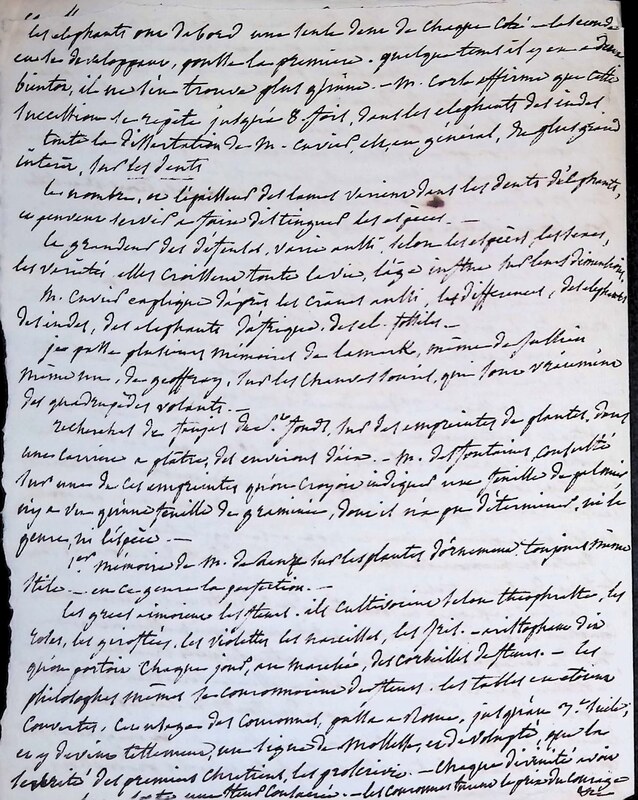 les elephants ont d'abord une seule dent de chaque coté – la seconde
en se developpant, pousse la premiere. quelque tems il y en a deux
bientot, il ne s'en trouve plus qu'une. – M. corse affirme que cette
succession se repete jusqu'a 8. fois, dans les elephants des indes.
toute la dissertation de M. cuvier, est, en général, du plus grand
interet, sur les dents
le nombre, et l'epaisseur des lames varient dans les dents d'elephants,
et peuvent servir a faire distinguer les espèces. –
la grandeur des defenses, varie aussi selon les espèces, les sexes,
les variétés. elles croissent toute la vie, l'age influe sur leurs dimensions,
M. cuvier explique d'après les crânes aussi, les differences, des elephants
des indes, des elephants d'afrique, des el. fossiles. –
je passe plusieurs memoires de lamark, même de jussieu
même un, de geoffroy, sur les chauves souris, qui sont vraiment
des quadrupèdes volants. –
recherches de faujas de St fond, sur des empreintes de plantes, dans
une carriere a platre, des environs d'aix. – M. des fontaines, consulté
sur une de ces empreintes qu'on croyoit indiquer une feuille de palmier
n'y a vu qu'une feuille de graminée, dont il n'a pu déterminer, ni le
genre, ni l'espèce. –
1er mémoire de M. de sur les plantes d'ornement. toujours même
stile. – en ce genre la perfection. –
les grecs aimoient les fleurs. ils cultivoient selon theophraste, les
roses, les giroflées, les violettes les narcisses, les iris. – aristophane dit
qu'on portoit chaque jour, au marché, des corbeilles de fleurs. – les
philosophes mêmes se couronnoient de fleurs. les tables en etoient
couvertes. cet usage des couronnes, passa a Rome, jusqu'au siecle,
et y devint tellement, un signe de mollesse, et de volupté, que la
severité des premiers chretiens, les proscrivit. – chaque divinité avoit
une fleur consacrée. – les couronnes furent le prix du courage